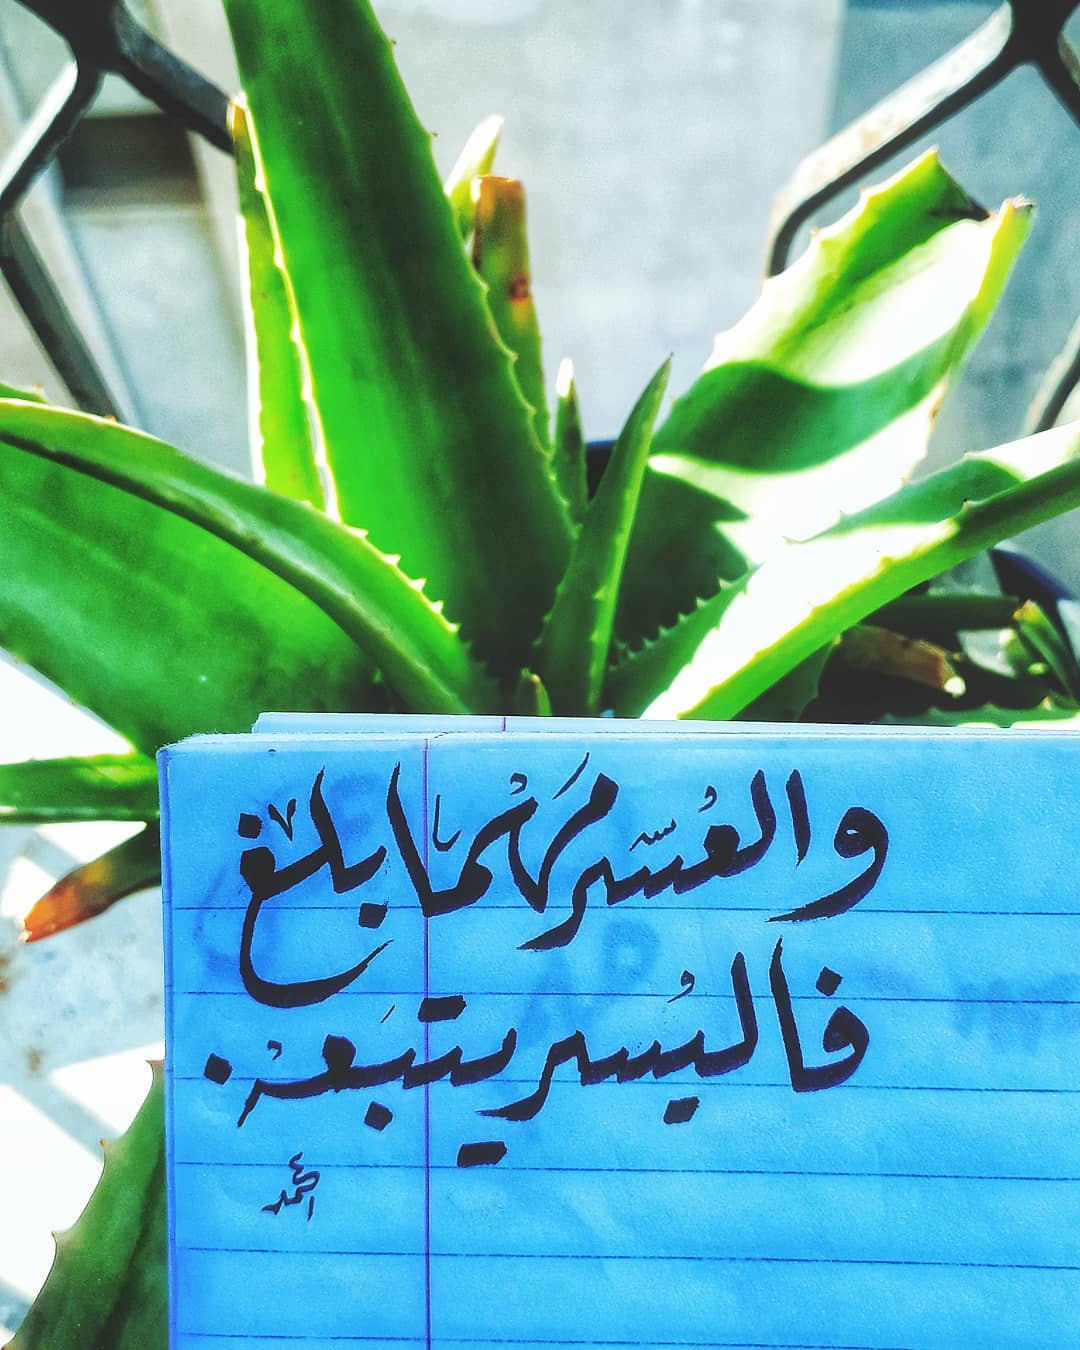 والعُسر مَهْما بلغ
فاليُسر يتبَعهْ.
احمد